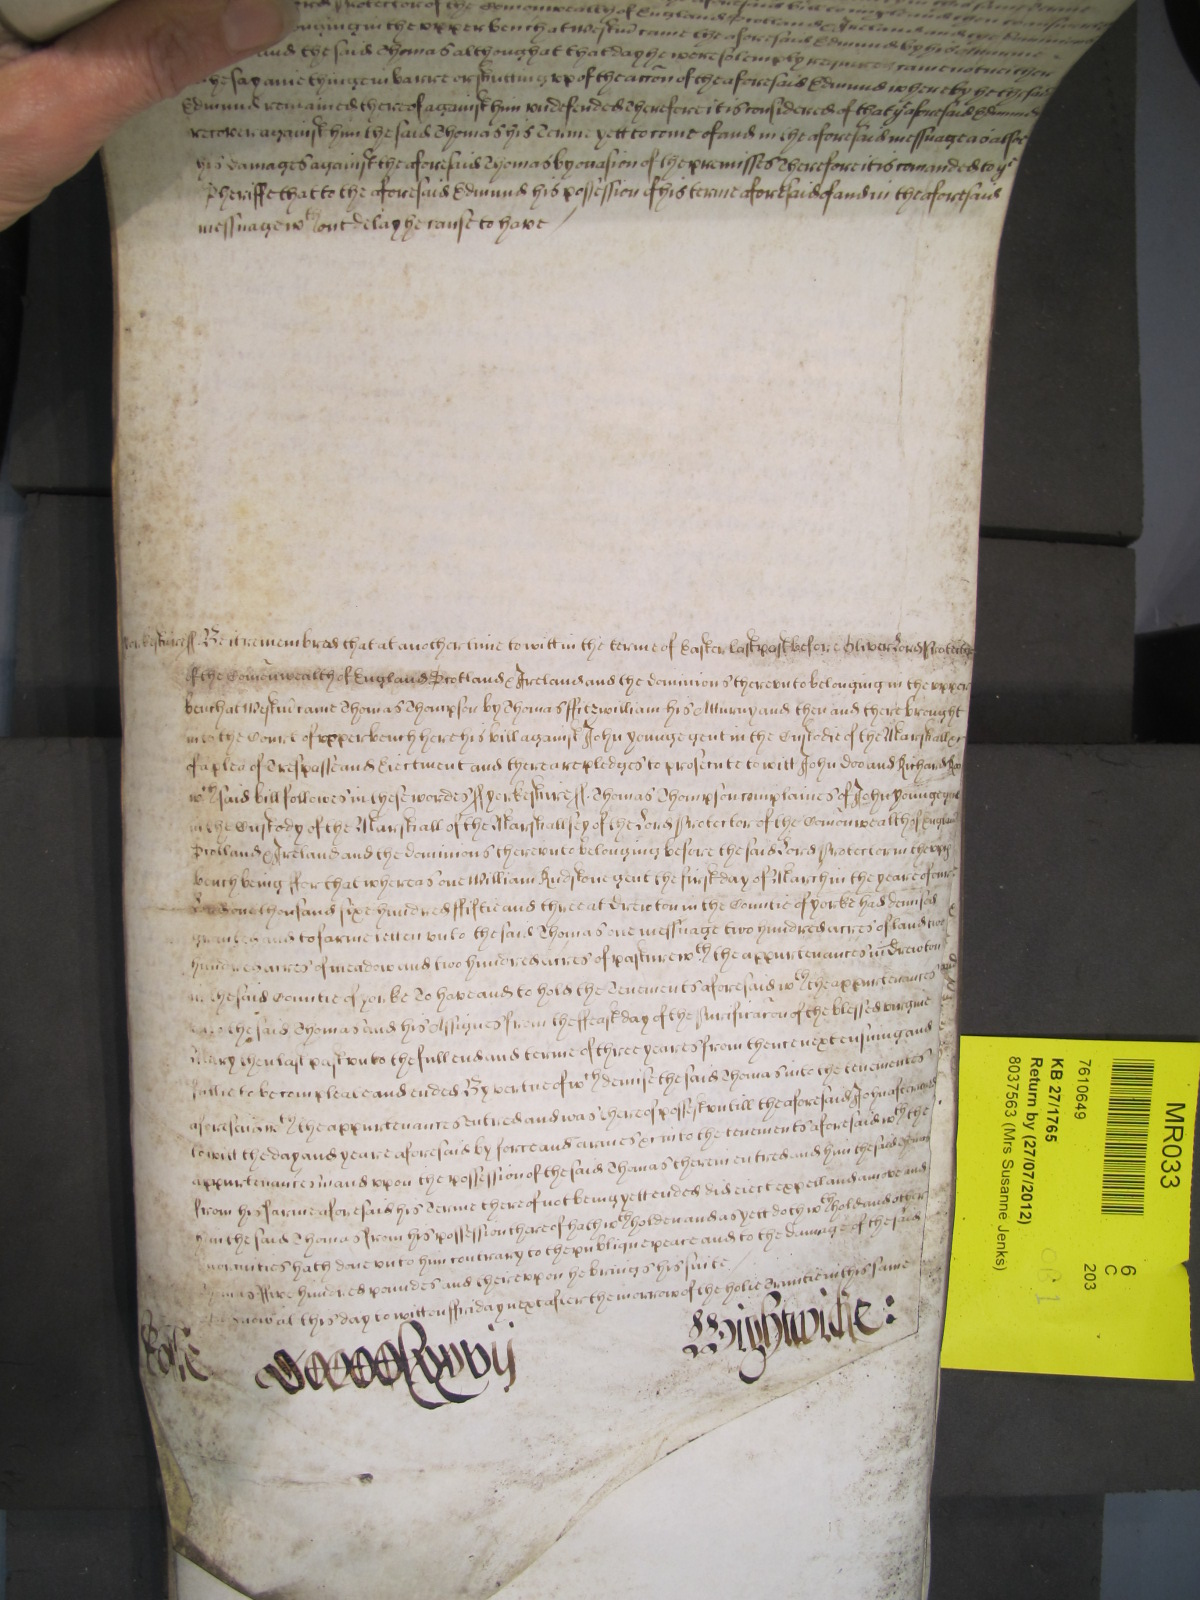 Lord Protector of the Comonwealth of England Scotland & Ireland and the dominions
belonging in the upper bench at Westmr came the aforesaid Edmund by his Atturnie
and the said Thomas although at that day he were solemply required came not neither
he say anie thinge in barre or shutting up of the accon of the aforesaid Edmund whereby he the said
Edmund remained thereof against him undefended Therefore it is considered of that ye aforesaid Edmund
recover against him the said Thomas his Terme yett to come of and in the aforesaid messuage as alsoe
his damages against the aforesaid Thomas by occasion of the premisses Therefore it is comanded to ye
Sheriffe that to the aforesaid Edmund his possession of his terme aforesaid of and in the aforesaid
messuage wthout delay he cause to have
Yorkeshire ss Be it remembred that at another time to witt in the terme of Easter last past before Oliver Lord Protector
of the Comonwealth of England Scotland & Ireland and the dominions thereunto belonging in the upper
bench at Westmr came Thomas Thompson by Thomas ffitzwilliam his Atturny and then and there brought
into the Court of upper bench here his bill against John Younge gent in the Custodie of the Marshall &c
of a plea of Trespasse and Eiectment and there are pledges to prosecute to witt John Doo and Richard Roo
wch said bill followes in these wordes ss Yorkeshire ss Thomas Thompson complaines of John Younge gent
in the Custody of the Marshall of the Marshallsey of the Lord Protector of the Comonwealth of England
Scotland & Ireland and the dominions thereunto belonging before the said Lord Protector in the upp
bench being ffor that whereas one William Rudstone gent the first day of March in the yeare of our
Lord one thousand sixe hundred ffiftie and three at Drewton in the Countie of Yorke had demised
graunted and to farme letten unto the said Thomas one messuage two hundred acres of land two
hundred acres of meadow and two hundred acres of pasture wth the appurtenances in Drewton
in the said Countie of Yorke To have and to hold the Tenements aforesaid wth the appurtenances
unto the said Thomas and his Assignes from the ffeast day of the Purificacon of the blessed virgine
Mary then last past unto the full end and terme of three yeares from thence next ensuing and
fullie to be compleate and ended By vertue of wch demise the said Thomas into the tenements
aforesaid wth the appurtenances entred and was thereof possest untill the aforesaid John afterwards
to witt the day and yeare aforesaid by force and armes &c into the tenements aforesaid wth the
appurtenances in and upon the possession of the said Thomas therein entred and him the said Thomas
from his farme aforesaid his Terme thereof not being yett ended did eiect expell and amove and
him the said Thomas from his possession thereof hath wthholden and as yett doth wthhold and other
enormities hath done unto him contrary to the publique peace and to the damage of the said
Thomas ffive hundred poundes and thereupon he brings his suite
And now at this day to witt on ffriday next after the morrow of the holie Trinitie in this same
Wightwicke:
MR033
6
C
203
7610649
KB 27/1765
Return by (27/07/2012)
8037563 (Mrs Susanne Jenks)